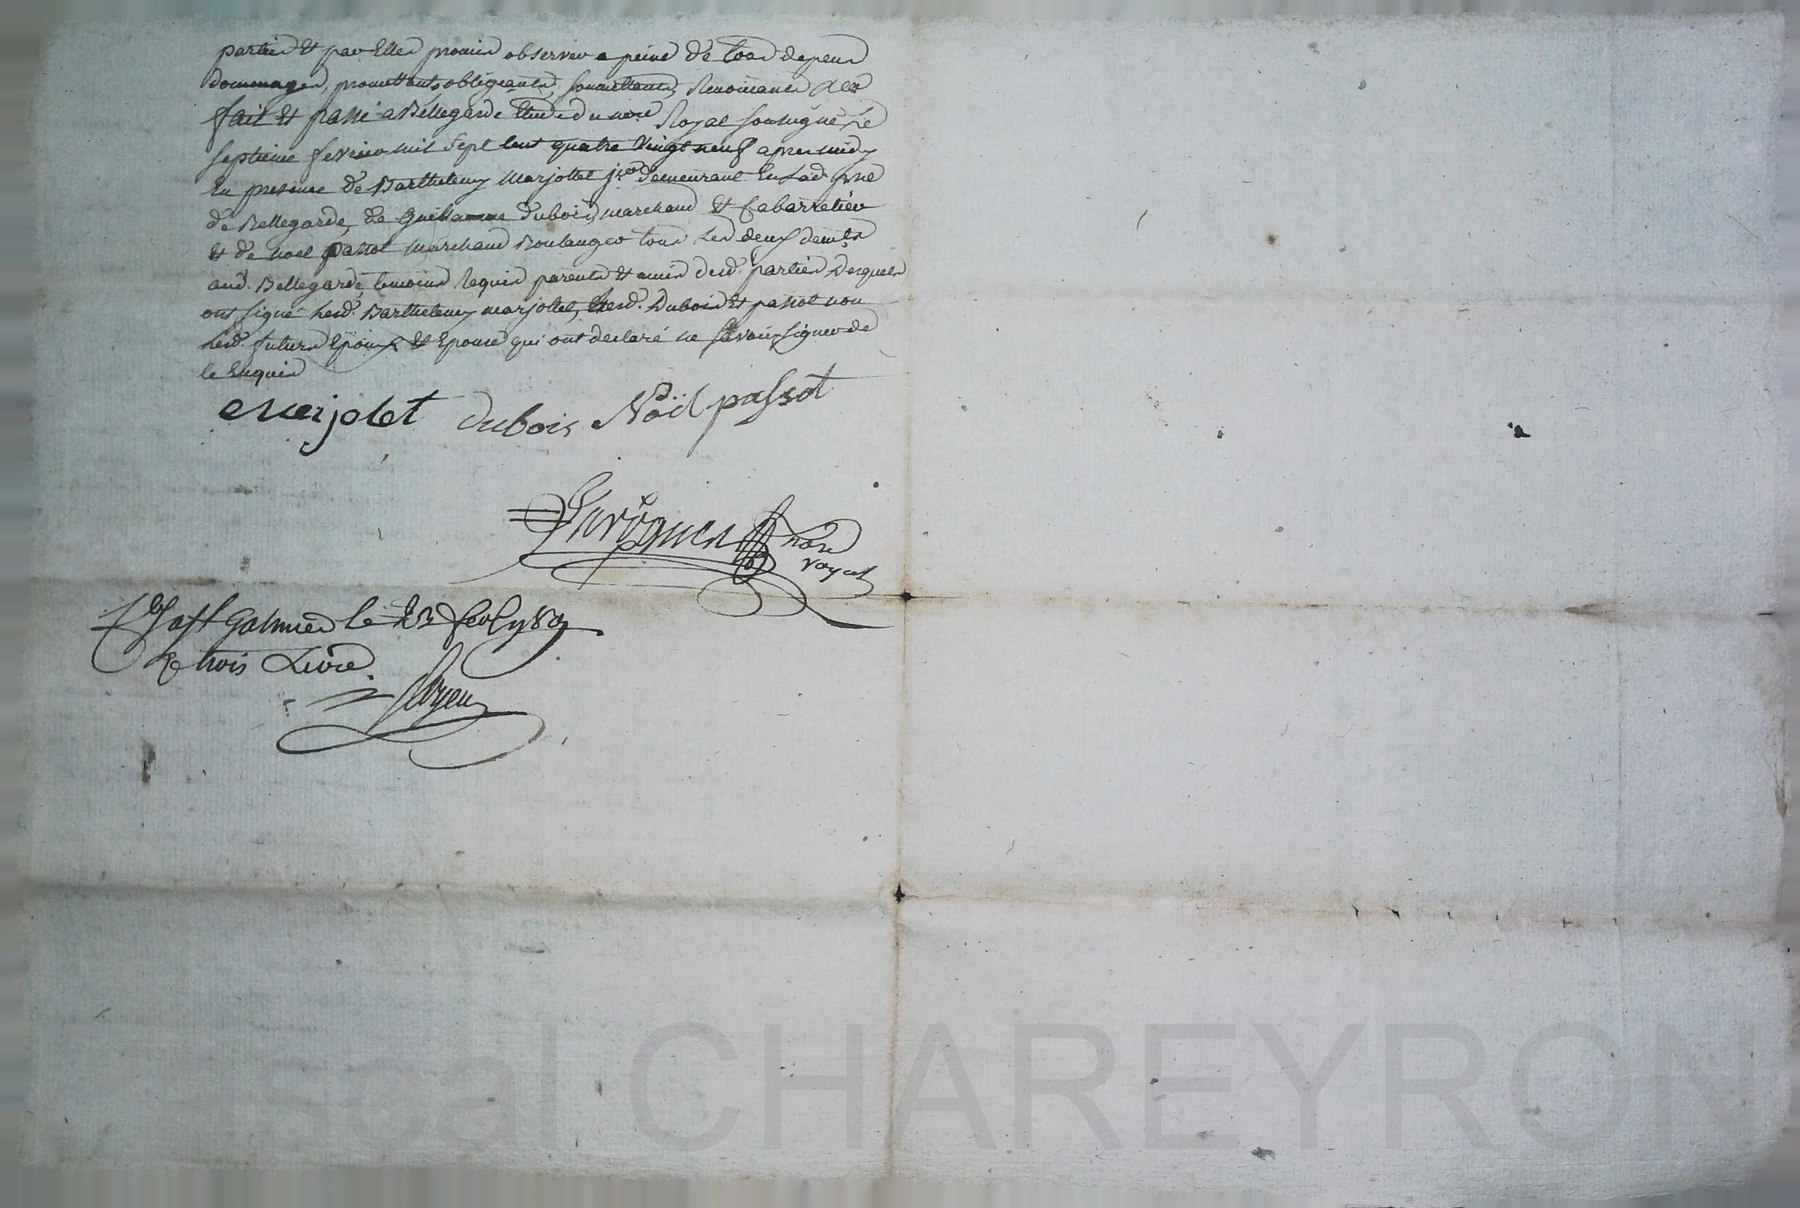 parties et par elles promis observer a peine de tous depens
dommages, promettants, obligeants, soumettants, Renoncants &ca
fait et passé a Bellegarde Etude du nore Royal soussigné Le
septieme fevrier mil sept cent quatre vingt neuf apres midy
En presence de Barthelemy Marjollet demeurant En lad.
de Bellegarde, de Guillaume Dubois, marchand et Cabarretier
et de Noel passot Marchand Boulanger tous les deux demts
aud. Bellegarde, temoins Requis parents et amis desd. parties Lesquels
ont signé lesd. Barthelemy marjollet, lesd. Dubois et passot non
lesd. futurs Epoux et Epouse qui ont declaré ne savoir signer de
ce Enquis
Merjolet dubois Noël passot
nore
royal
a st Galmier le 23 fev 1789
Rç trois Livre
Pascal CHAREYRON